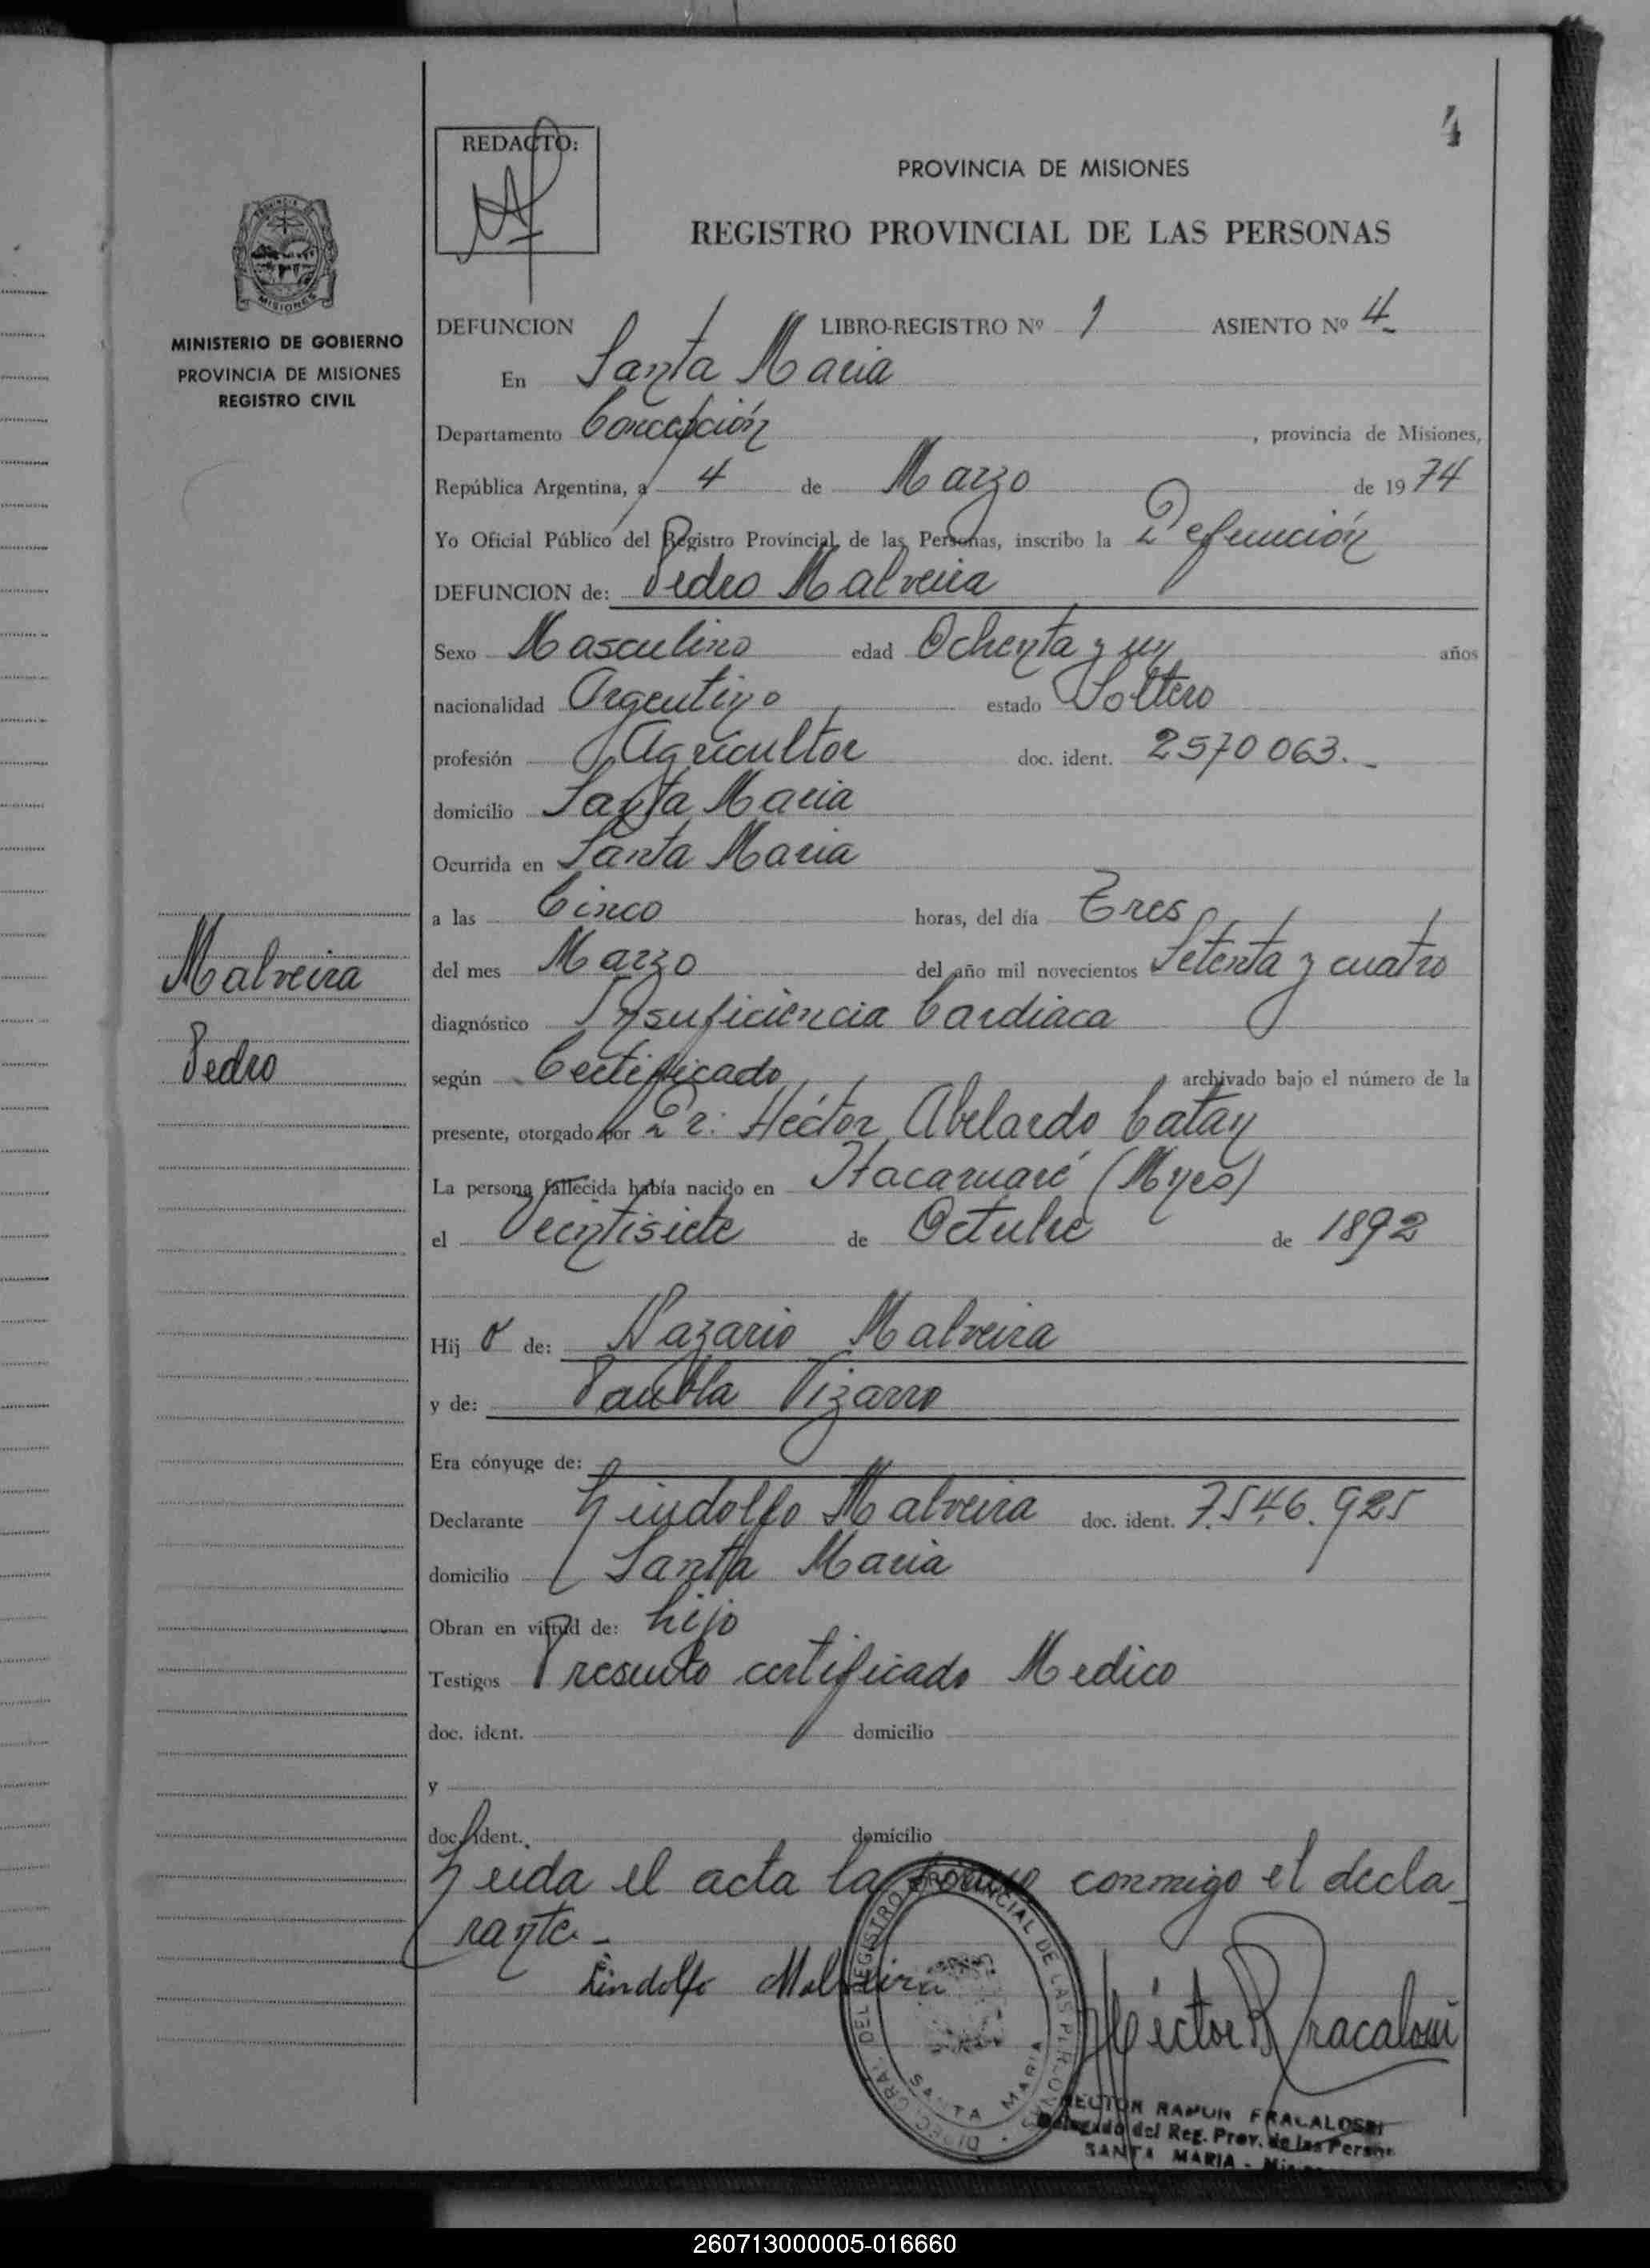 4
REDACTO:
PROVINCIA DE MISIONES
REGISTRO PROVINCIAL DE LAS PERSONAS
MISIONES
MINISTERIO DE GOBIERNO
PROVINCIA DE MISIONES
REGISTRO CIVIL
DEFUNCION LIBRO-REGISTRO Nº 1 ASIENTO Nº 4
En Santa Maria
Departamento Concepción, provincia de Misiones,
República Argentina, a 4 de Marzo de 1974
Yo Oficial Público del Registro Provincial de las Personas, inscribo la Defunción
DEFUNCION de: Pedro Malveira
Sexo Masculino edad Ochenta y un años
nacionalidad Argentino estado Soltero
profesión Agricultor doc. ident. 2570063.-
domicilio Santa Maria
Ocurrida en Santa Maria
a las Cinco horas, del día Tres
del mes Marzo del año mil novecientos Setenta y cuatro
diagnóstico Insuficiencia Cardiaca
según Certificado archivado bajo el número de la
presente, otorgado por Dr. Héctor Abelardo Catay
La persona fallecida había nacido en Itacaruaré (Mnes)
el Veintisiete de Octubre de 1892
Hijo de: Nazario Malveira
y de: Paubla Pizarro
Era cónyuge de:
Declarante Lindolfo Malveira doc. ident. 7.546.925
domicilio Santa Maria
Obran en virtud de: hijo
Testigos Presento certificado Medico
doc. ident. domicilio
y
doc. ident. domicilio
Leida el acta la conmigo el decla
rante.-
Lindolfo Malveira
Héctor R Fracalossi
DIREC. GRAL. DEL REGISTRO PROVINCIAL DE LAS PERSONAS
SANTA MARIA
HECTOR RAMON FRACALOSSI
Delegado del Reg. Prov. de las Person.
SANTA MARIA - Mis
Malveira
Pedro
260713000005-016660